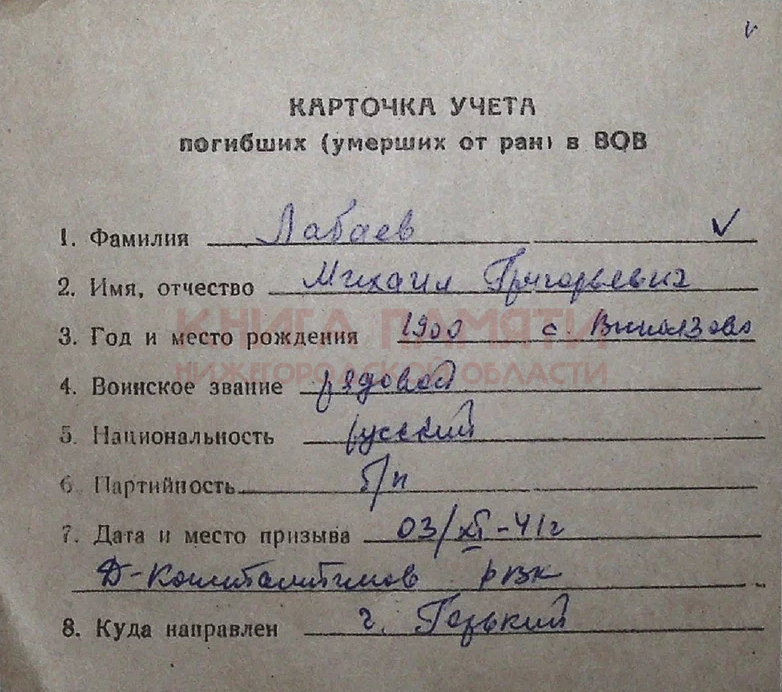 КАРТОЧКА УЧЕТА
погибших (умерших от ран) в ВОВ
1. Фамилия Лабаев
2. Имя, отчество Михаил Григорьевич
3. Год и место рождения 1900 с.
КНИГА ПАМЯТИ
НИЖЕГОРОДСКОЙ ОБЛАСТИ
4. Воинское звание рядовой
5. Национальность русский
6. Партийность б/п
7. Дата и место призыва 03/XI-41г
Д-Константинов рвк
8. Куда направлен г. Горький